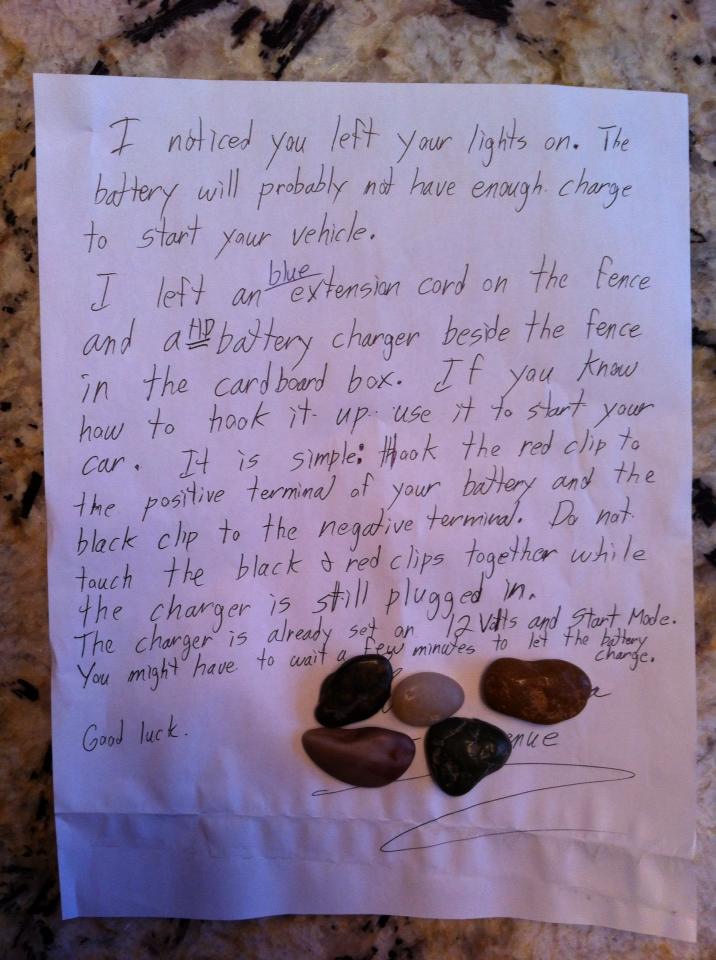 I noticed you left your lights on. The
battery will probably not have enough charge
to start your vehicle.
I left an blue extension cord on the fence
and a HD battery charger beside the fence
in the cardboard box. If you know
how to hook it up use it to start your
car. It is simple: Hook the red clip to
the positive terminal of your battery and the
black clip to the negative terminal. Do not
touch the black & red clips together while
the charger is still plugged in.
The charger is already set on 12 Volts and Start Mode.
You might have to wait a few minutes to let the battery
charge.
Good luck.